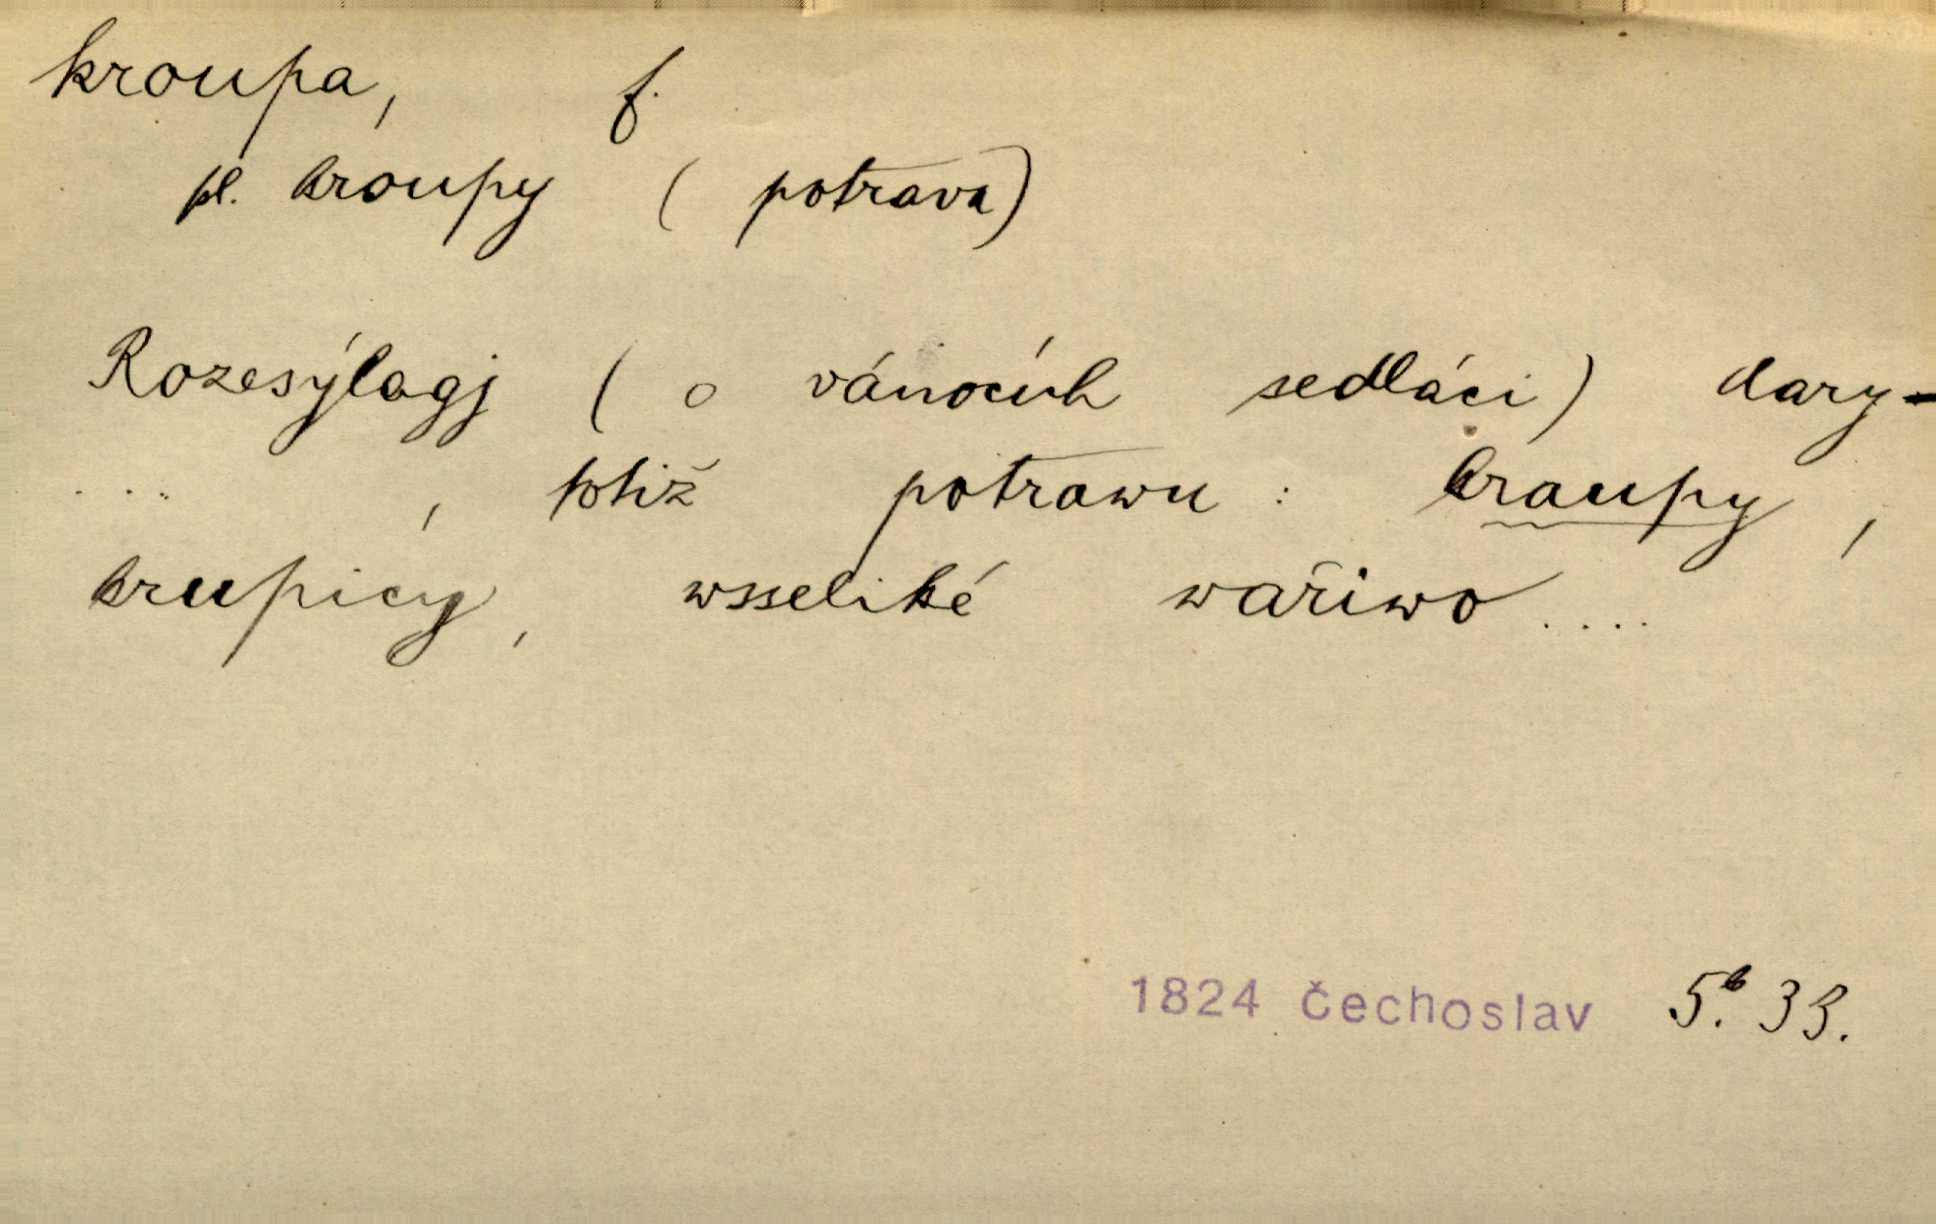 kroupa, f.
pl. kroupy (potrava)
Rozesýlagj (o vánocích sedláci) dary-
...., totiž potrawu: kraupy,
krupicy, wsseliké wařiwo....
1824 Čechoslav 5.b 33.